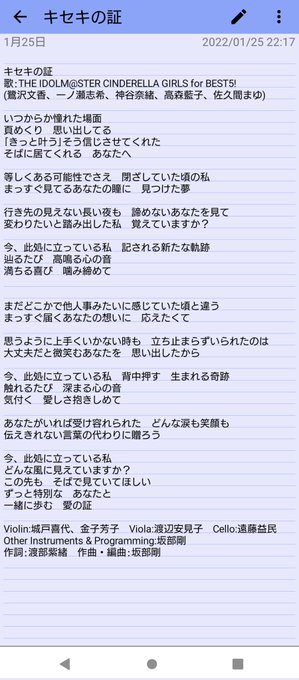 キセキの証
1月25日
2022/01/25 22:17
キセキの証
歌:THE IDOLM@STER CINDERELLA GIRLS for BEST5!
(鷺沢文香、一ノ瀬志希、神谷奈緒、高森藍子、佐久間まゆ)
いつからか憧れた場面
頁めくり　思い出してる
「きっと叶う」そう信じさせてくれた
そばに居てくれる　あなたへ
等しくある可能性でさえ　閉ざしていた頃の私
まっすぐ見てるあなたの瞳に　見つけた夢
行き先の見えない長い夜も　諦めないあなたを見て
変わりたいと踏み出した私　覚えていますか？
今、此処に立っている私　記される新たな軌跡
辿るたび　高鳴る心の音
満ちる喜び　噛み締めて
まだどこかで他人事みたいに感じていた頃と違う
まっすぐ届くあなたの想いに　応えたくて
思うように上手くいかない時も　立ち止まらずいられたのは
大丈夫だと微笑むあなたを　思い出したから
今、此処に立っている私　背中押す　生まれる奇跡
触れるたび　深まる心の音
気付く　愛しさ抱きしめて
あなたがいれば受け容れられた　どんな涙も笑顔も
伝えきれない言葉の代わりに贈ろう
今、此処に立っている私
どんな風に見えていますか？
この先も　そばで見ていてほしい
ずっと特別な　あなたと
一緒に歩む　愛の証
Violin:城戸喜代、金子芳子　Viola:渡辺安見子　Cello:遠藤益民
Other Instruments & Programming:坂部剛
作詞:渡部紫緒　作曲・編曲:坂部剛